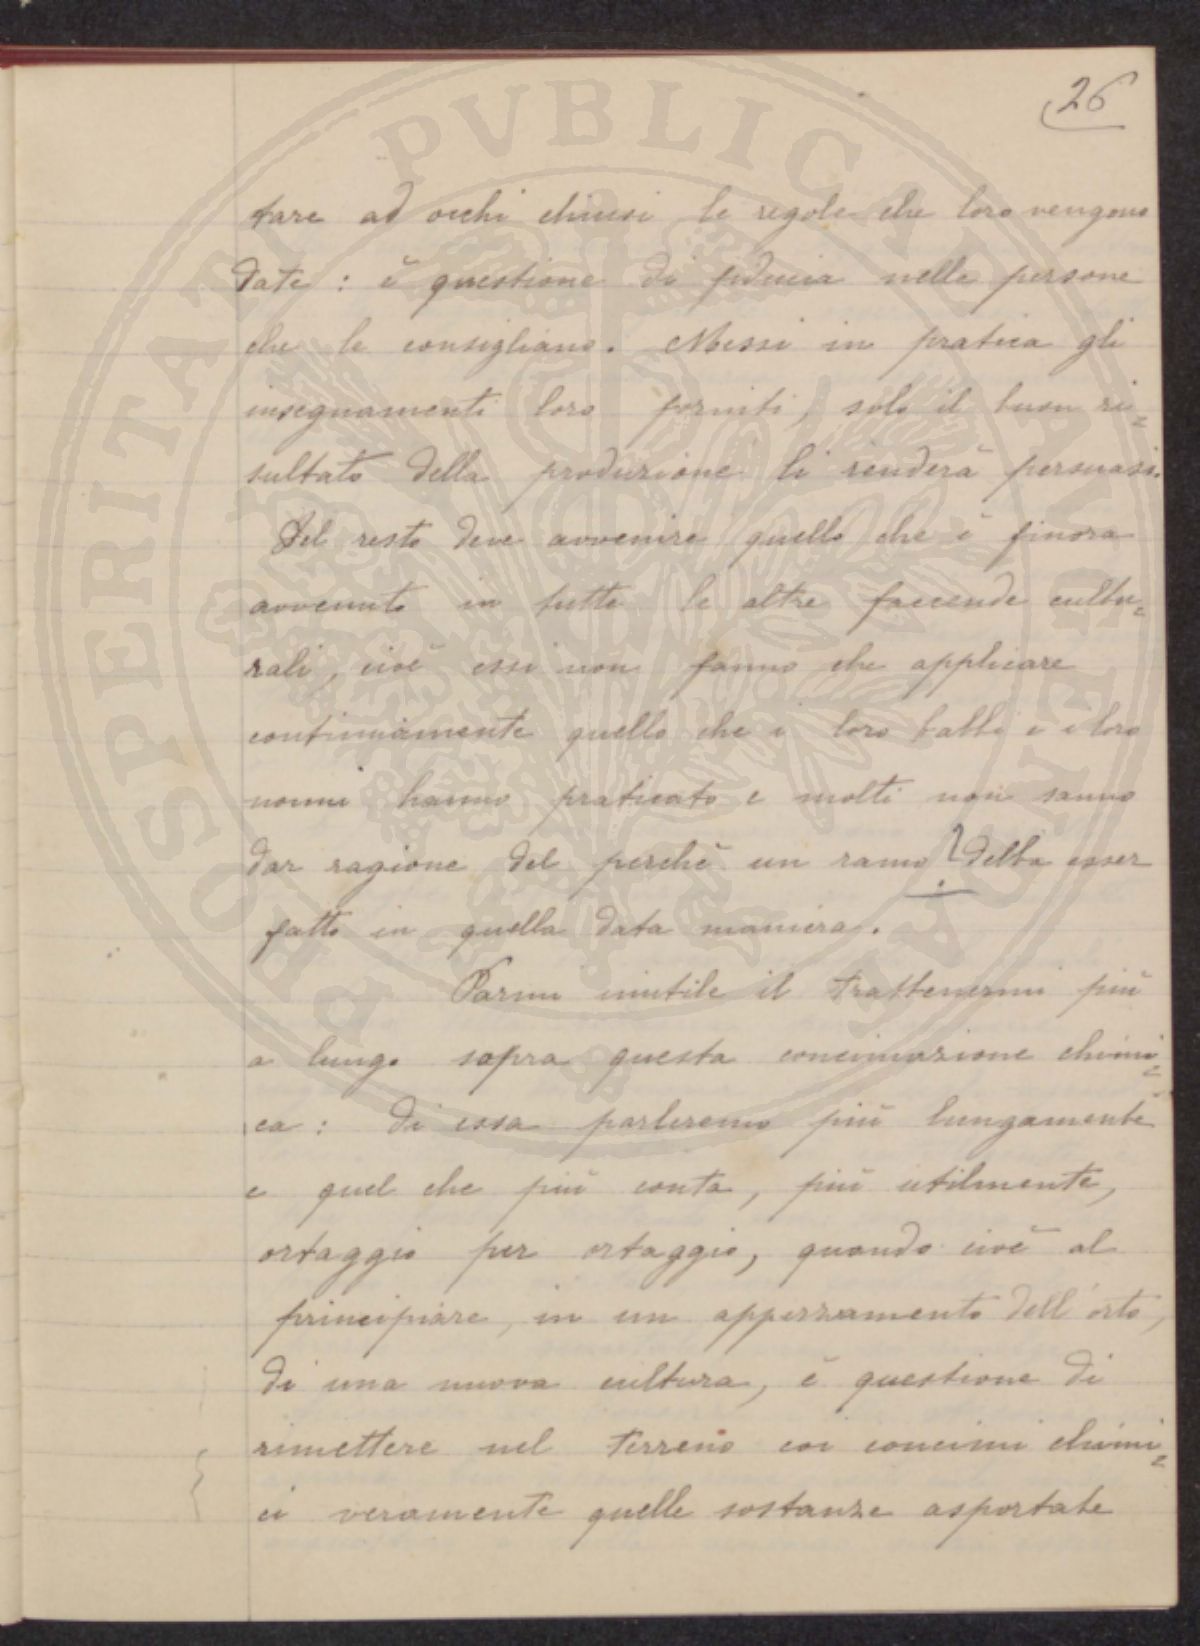 26
tare ad occhi chiusi le regole che loro vengono
date : è questione di fiducia nelle persone
che le consigliano. Messi in pratica gli
insegnamenti loro forniti, solo il buon ri=
sultato della produzione li renderà persuasi.
Del resto deve avvenire quello che è finora
avvenuto in tutte le altre faccende cultu=
rali, cioè essi non fanno che applicare
continuamente quello che i loro babbi e i loro
nonni hanno praticato e molti non sanno
dar ragione del perchè un ramo ? debba esser
fatto in quella data maniera.
Parmi inutile il trattenermi più
a lungo sopra questa concimazione chimi=
ca : di essa parleremo più lungamente
e quel che più conta, più utilmente,
ortaggio per ortaggio, quando cioè al
principiare, in un appezzamento dell'orto,
di una nuova cultura, è questione di
rimettere nel terreno coi concimi chimi=
ci veramente quelle sostanze asportate
PROSPERITATI PVBLICAE AVGENDAE